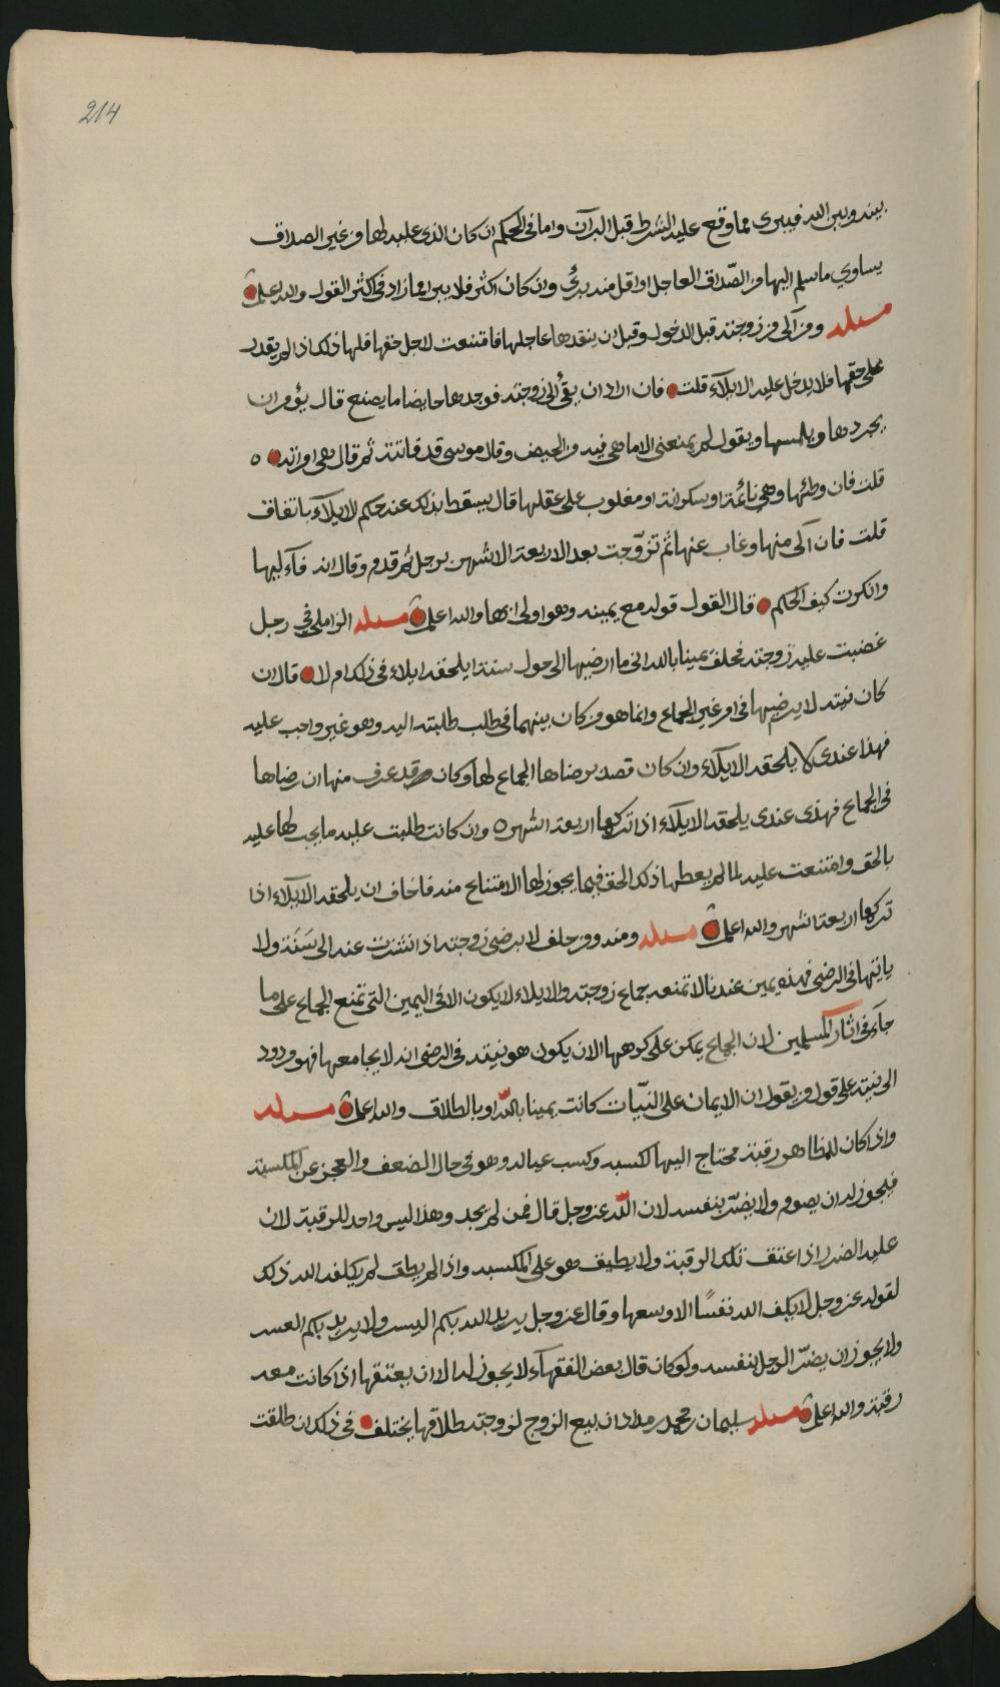 214
بينه وبين الله فيبرى مما وقع عليه الشرط قبل البرآن واما في الحكم ان كان الذي عليه لها من غير الصداق
يساوي ما سلم اليها من الصّداق العاجل او اقل منه برئ وان كان اكثر فلا يبرا مما زاد في اكثر القول والله اعلم
مسئله ومن آلى من زوجته قبل الدخول وقبل ان ينقدها عاجلها فامتنعت لاجل حقها فلها ذلك اذا لم يقدر
على حقها فلا يدخل عليه الايلآء قلت فان اراد ان يفئ الى زوجته فوجدها حايضا ما يصنع قال يؤمر ان
يجردها ويلمسها ويقول لم يمنعني الا ما هي فيه من الحيض وقال موسى قد فاتته ثم قال هي امراته ه
قلت فان وطئها وهي نائمة او سكرانة او مغلوب على عقلها قال يسقط بذلك عنه حكم الايلآء باتفاق
قلت فان آلى منها وغاب عنها ثم تزوّجت بعد الاربعة الاشهر برجل ثم قدم وقال انه فآء اليها
وانكرت كيف الحكم قال القول قوله مع يمينه وهو اولى بها والله اعلم مسئله الزاملي في رجل
غضبت عليه زوجته فحلف يمينا بالله اني ما ارضيها الى حول سنة ايلحقه ايلاء في ذلك ام لا قال ان
كان نيته لا يرضيها في امر غير الجماع وانما هو من كان بينهما في طلب طلبته اليه وهو غير واجب عليه
فهذا عندي لا يلحقه الايلآء وان كان قصد برضاها الجماع لها وكان قد عرف منها ان رضاها
في الجماع فهذى عندى يلحقه الايلآء اذا تركها اربعة اشهر ه وان كانت طلبت عليه ما يجب لها عليه
بالحق وامتنعت عليه لما لم يعطها ذلك الحق فيما يجوز لها الامتناع منه فاخاف ان يلحقه الايلآء اذا
تركها اربعة اشهر والله اعلم مسئله ومنه ومن حلف لا يرضي زوجته اذا انشزت عنه الى سَنَة ولا
ياتيها في الرضى فهذه يمين عندنا لا تمنعه جماع زوجته والايلاء لا يكون الا في اليمين التي تمنع الجماع على ما
جآء في اثار المسلمين لان الجماع يمكن على كرهها الا ان يكون هو نيته في الرضى انه لا يجامعها فهو مردود
الى نيته على قول من يقول ان الايمان على النيّات كانت يمينا باللّه او بالطلاق والله اعلم مسئله
واذا كان للمظاهر رقبة محتاج اليها لكسبه وكسب عياله وهو في حال الضعف والعجز عن المكسبة
فيجوز له ان يصوم ولا يضرّ بنفسه لان اللّه عز وجل قال فمن لم يجد وهذا ليس واجد للرقبة لان
عليه الضرر اذا عتق تلك الرقبة ولا يطيق هو على المكسبه واذا لم يطق لم يكلفه الله ذلك
لقوله عز وجل لا يكلف الله نفسًا الا وسعها وقال عز وجل يريد الله بكم اليسر ولا يريد بكم العسر
ولا يجوز ان يضرّ الرجل بنفسه ولو كان قال بعض الفقهآء لا يجوز له الا ان يعتقها اذا كانت معه
رقبة والله اعلم مسئله سليمان بن محمد بن مداد ان بيع الزوج لزوجته طلاقها يختلف في ذلك ان طلقت